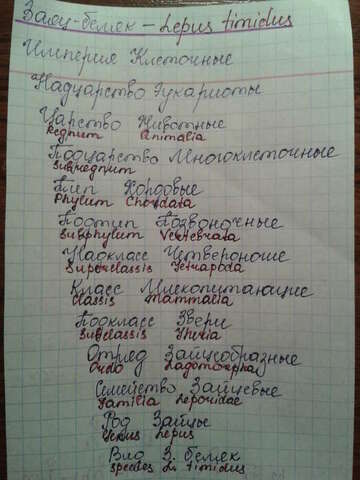 Заяц-беляк – Lepus timidus
Империя Клеточные
Надцарство Эукариоты
Царство Животные
Regnum Animalia
Подцарство Многоклеточные
Subregnum
Тип Хордовые
Phylum Chordata
Подтип Позвоночные
Subphylum Vertebrata
Надкласс Четвероногие
Superclassis Tetrapoda
Класс Млекопитающие
Classis Mammalia
Подкласс Звери
Subclassis Theria
Отряд Зайцеобразные
Ordo Lagomorpha
Семейство Зайцевые
Familia Leporidae
Род Зайцы
Genus Lepus
Вид З. беляк
Species L. timidus